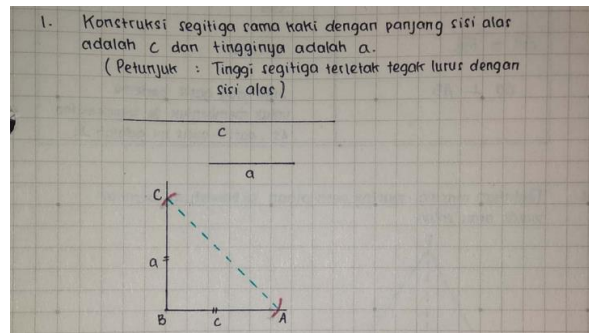 1. Konstruksi segitiga sama kaki dengan panjang sisi alas
adalah c dan tingginya adalah a.
(Petunjuk : Tinggi segitiga terletak tegak lurus dengan
sisi alas)
c
a
C
a
B c A